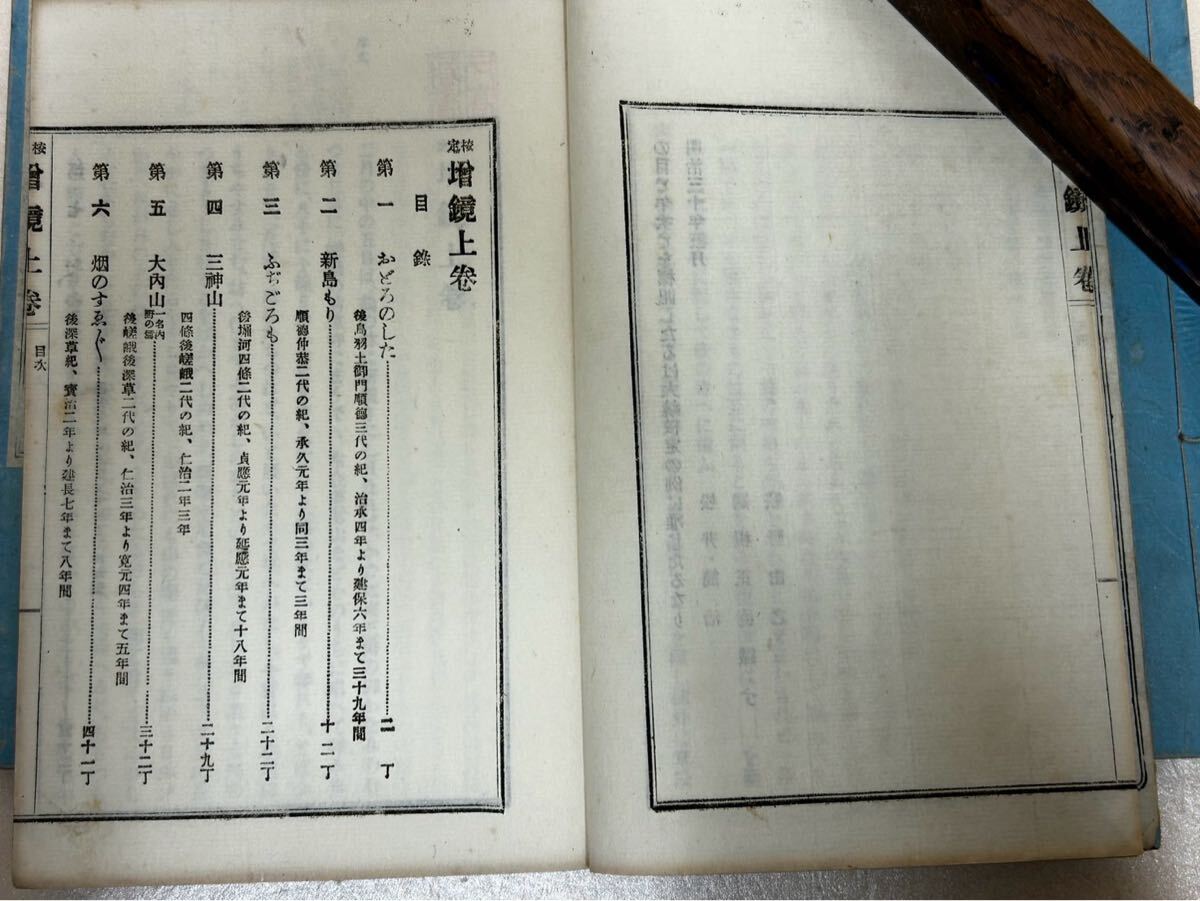 鏡上卷
校定 增鏡上卷
目錄
第一 おどろのした 二丁
後鳥羽土御門順德三代の紀、治承四年より建保六年まて三十九年間
第二 新島もり 十二丁
順德仲恭二代の紀、承久元年より同三年まて三年間
第三 ふぢごろも 二十二丁
後堀河四條二代の紀、貞應元年より延應元年まて十八年間
第四 三神山 二十九丁
四條後嵯峨二代の紀、仁治二年三年
第五 大內山 一名內野の雪 三十二丁
後嵯峨後深草二代の紀、仁治三年より寬元四年まて五年間
第六 烟のすゑ〴〵 四十一丁
後深草紀、寶治二年より建長七年まて八年間
增鏡上卷 目次